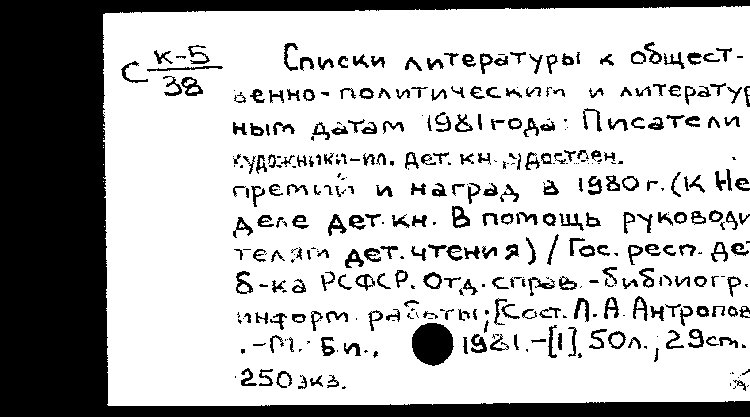 С К-5/38
Списки литературы к общест-
венно-политическим и литератур
ным датам 1981 года: Писатели
художники-ил. дет. кн. удостоен.
премий и наград в 1980 г. (К Не
деле дет. кн. В помощь руководи
телям дет. чтения) / Гос. респ. дет
б-ка РСФСР. Отд. справ.-библиогр.
информ. работы; [Сост. Л. А. Антропов
.-М.: Б.и., 1981.-[1], 50л.; 29см.
250 экз.